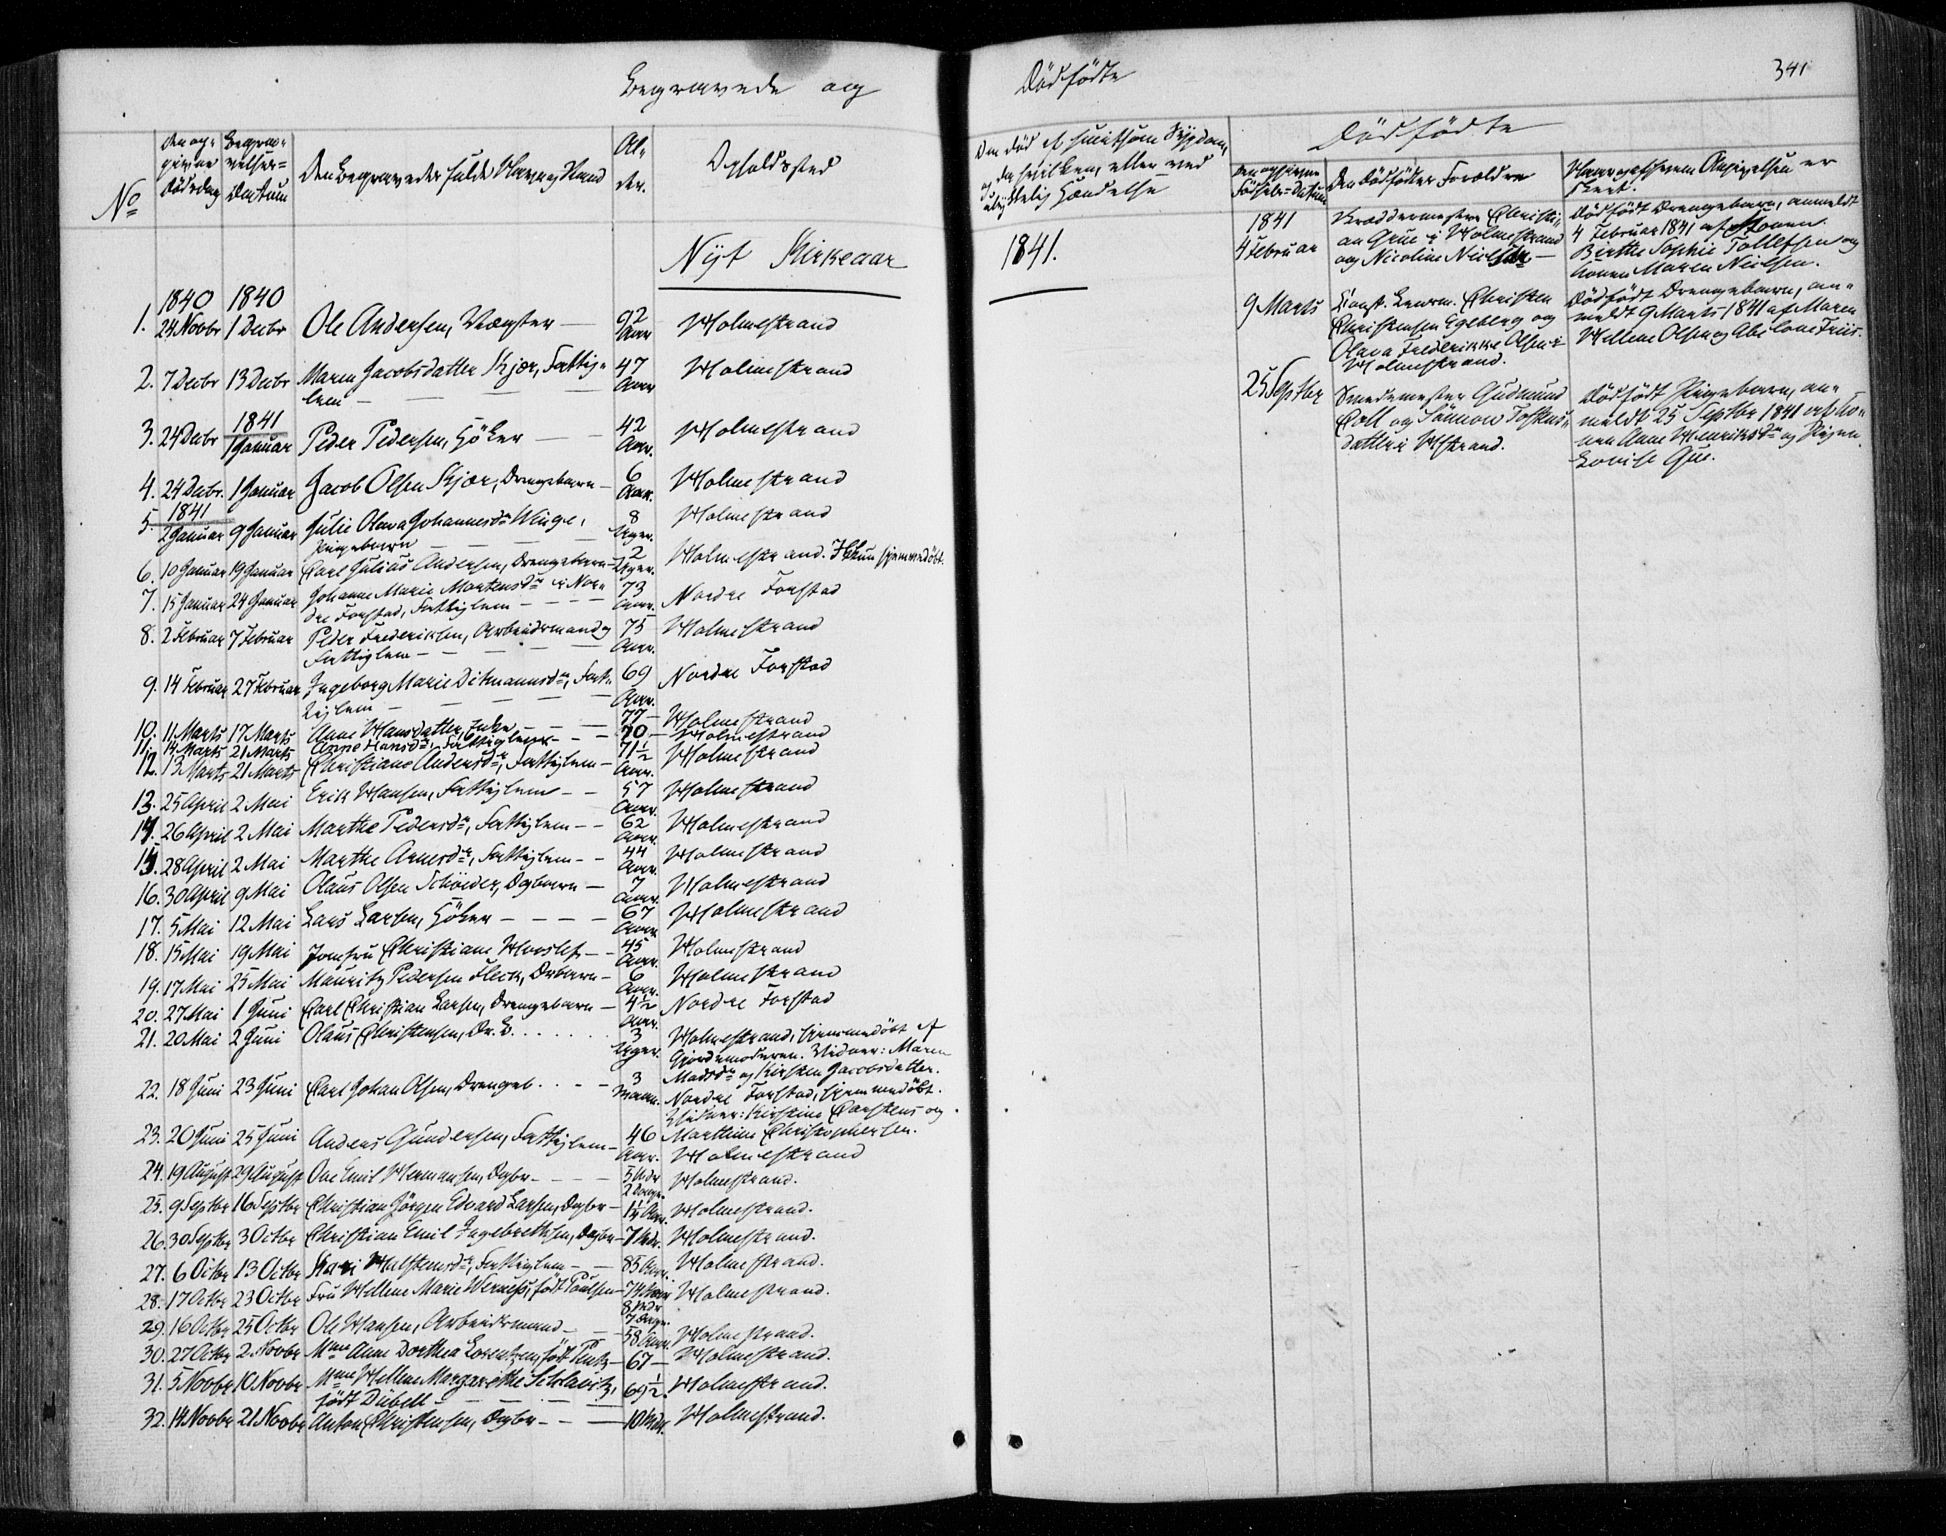 Begravede og Dødfødte 341
No
Den opgivne Dødsdag
Begravelses-Datum
Den Begravedes fulde Navn og Stand
Alder.
Opholdssted
Om død af smitsom Sygdom, og da hvilken, eller ved ulykkelig Hændelse
Dødfødte
Den opgivne Fødsels-Datum
Den Dødfødtes Forældre
Naar og af hvem Angivelsen er skeet.
Nyt Kirkeaar 1841.
1840 1840
1. 24 Novbr 1 Decbr Ole Andersen, Vægter — 92 Aar Holmestrand
2. 7 Decbr 13 Decbr Maren Jacobsdatter Kjær, Fattig-
lem — 47 Aar Holmestrand
1841
3. 24 Decbr 1 Januar Peder Pedersen, Höker — 42 Aar. Holmestrand
4. 24 Decbr. 1 Januar Jacob Olsen Kjær, Drengebarn — 6 Aar. Holmestrand
1841
5. 2 Januar 9 Januar Julie Olava Johannesdr Winge,
Pigebarn — 8 Uger. Holmestrand
6. 10 Januar 19 Januar Carl Julius Andersen, Drengebarn — 2 Uger. Holmestrand. Kun hjemmedöbt.
7. 15 Januar 24 Januar Johanne Marie Mortensdr i Nor-
dre Forstad, Fattiglem — 73 Aar. Nordre Forstad
8. 2 Februar 7 Februar Peder Frederiksen, Arbeidsmand og
Fattiglem — 75 Aar. Holmestrand
9. 14 Februar 27 Februar Ingeborg Marie Ditmannsdr, Fat-
tiglem — 69 Aar. Nordre Forstad
10. 11 Marts 17 Marts Anne Hansdatter, Enke — 77 — Holmestrand
11. 14 Marts 21 Marts Anne Hansdr, Fattiglem — 70 — Holmestrand
12. 13 Marts 21 Marts Christiane Andersdr, Fattiglem — 71½ Aar. Holmestrand
13. 25 April 2 Mai Erik Hansen, Fattiglem — 57 Aar. Holmestrand
14. 26 April 2 Mai Marthe Pedersdr, Fattiglem — 62 Aar. Holmestrand
15. 28 April 2 Mai Marthe Arnesdr, Fattiglem — 44 Aar. Holmestrand
16. 30 April 9 Mai Olaus Olsen Schöider, Dgbarn — 7 Aar. Holmestrand
17. 5 Mai 12 Mai Lars Larsen, Höker — 67 Aar. Holmestrand
18. 15 Mai 19 Mai Jomfru Christiane Horslef — 45 Aar. Holmestrand
19. 17 Mai 25 Mai Mauritz Pedersen Fleck, Drbarn — 6 Aar. Holmestrand
20. 27 Mai 1 Juni Carl Christian Larsen, Drengebarn — 4½ Aar. Nordre Forstad
21. 20 Mai 2 Juni Olaus Christensen, Dr. B. 3 Uger. Holmestrand, hjemmedöbt af
Gjordemoderen. Vidner: Maren
Madsdr og Kirsten Jacobsdatter.
22. 18 Juni 23 Juni Carl Johan Olsen, Drengeb. 3 Maan. Nordre Forstad, hjemmedöbt.
Vidner: Kirstine Carstens og
Marthine Christophersen.
23. 20 Juni 25 Juni Anders Gundersen, Fattiglem — 46 Aar. Holmestrand
24. 19 August 29 August Ove Emil Hermansen, Dgbr — 5 Mdr 2 Dage. Holmestrand.
25. 9 Septbr 16 Septbr Christian Jörgen Edvard Larsen, Dgbr — 1¼ Aar. Holmestrand.
26. 30 Septbr 3 Octbr Christian Emil Ingebrethsen, Dgbr — 7 Mdr. Holmestrand.
27. 6 Octbr 13 Octbr Kari Halstensdr, Fattiglem — 85 Aar. Holmestrand.
28. 17 Octbr 23 Octbr Fru Hellene Marie Werness, født Paulsen — 74 Aar 8 Mdr 7 Dage. Holmestrand.
29. 16 Octbr 25 Octbr Ole Hansen, Arbeidsmand — 58 Aar. Holmestrand.
30. 27 Octbr 2 Novbr Mme Anne Dorthea Lorentzen, født Pentz — 67 — Holmestrand.
31. 5 Novbr 10 Novbr Mme Hellene Margarethe Schlavitz,
født Dübell — 69½ Holmestrand.
32. 14 Novbr 21 Novbr Anton Christensen, Dgbr — 10 Mdr. Holmestrand.
1841
4 Februar
Skræddermester Christi-
an Grue i Holmestrand
og Nicoline Nielsdr —
Dødfødt Drengebarn, anmeldt
4 Februar 1841 af Konen
Birthe Sophie Tollefsen og
Konen Maren Nielsen.
9 Marts
Const. Lensm. Christen
Christensen Egeberg og
Olava Frederikke Olsen i
Holmestrand.
Dødfødt Drengebarn, an-
meldt 9 Marts 1841 af Maren
Hellene Olsen og Abelone Friis.
25 Septbr
Smedemester Gudmund
Coll og Sönnov Torkus-
datter i Hstrand.
Dødfødt Pigebarn, an-
meldt 25 Septbr 1841 af Ko-
nen Anne Henriksdr og Pigen
Lovise Gue.